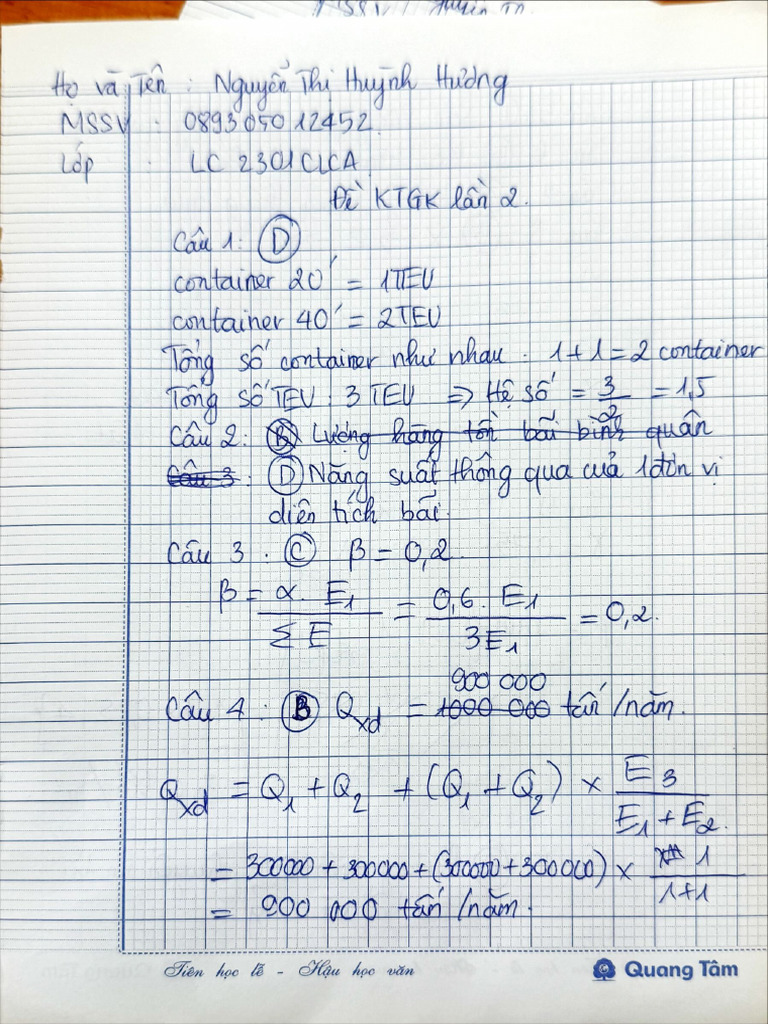 Họ và Tên : Nguyễn Thi Huỳnh Hương
MSSV : 089305012452
Lớp : LC 2301CLCA
Đề KTGK lần 2.
Câu 1: D
container 20' = 1TEU
container 40' = 2TEU
Tổng số container như nhau : 1+1 = 2 container
Tổng số TEU : 3 TEU => Hệ số = 3/2 = 1,5
Câu 2: B Lượng hàng tồn bãi bình quân
Câu 3 : D Năng suất thông qua của 1 đơn vị
diện tích bãi.
Câu 3 : C β = 0,2
β = α. E1 / Σ E = 0,6. E1 / 3E1 = 0,2.
900 000
Câu 4 : B Qxd = 1000 000 tấn /năm.
Qxd = Q1 + Q2 + (Q1 + Q2) × E3 / E1 + E2.
= 300000 + 300000 + (300000 + 300000) × 1 / 1+1
= 900 000 tấn /năm.
Tiên học lễ - Hậu học văn
Quang Tâm